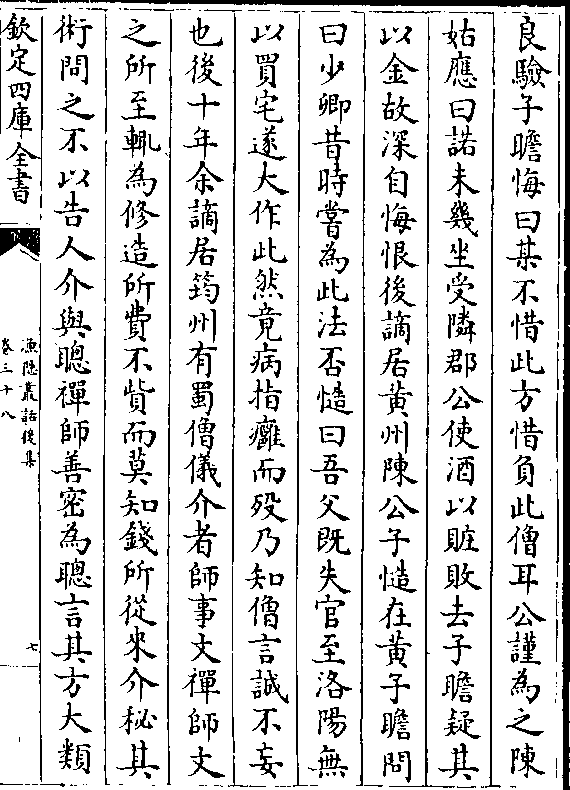 良驗子瞻悔曰某不惜此方惜負此僧耳公謹為之陳
姑應曰諾未幾坐受隣郡公使酒以賍敗去子瞻疑其
以金故深自悔恨後謫居黄州陳公子慥在黄子瞻問
曰少卿昔時嘗為此法否慥曰吾父既失官至洛陽無
以買宅遂大作此然竟病指癰而殁乃知僧言誠不妄
也後十年余謫居筠州有蜀僧儀介者師事文禪師文
之所至輒為修造所費不貲而莫知錢所從來介秘其
術問之不以告人介與聰禪師善密為聰言其方大類
欽定四庫全書
漁隠叢話後集
卷三十八
七